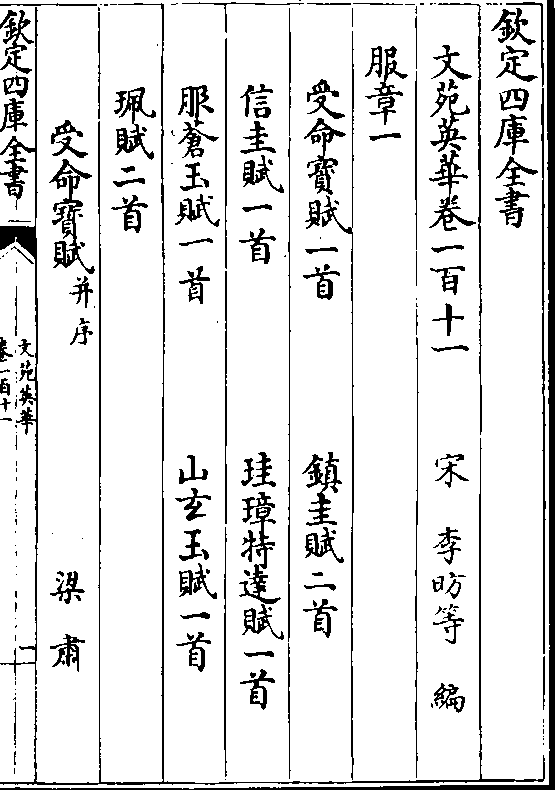 欽定四庫全書
文苑英華卷一百十一　宋　李昉等　編
服章一
受命寶賦一首　鎮圭賦二首
信圭賦一首　珪璋特達賦一首
服蒼玉賦一首　山玄玉賦一首
珮賦二首
受命寶賦并序　梁肅
欽定四庫全書
文苑英華
卷一百十一
一